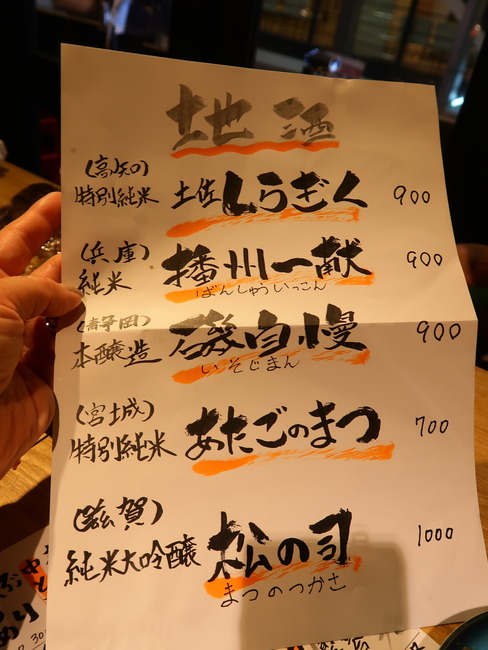 地酒
(高知)
特別純米 土佐しらぎく 900
(兵庫)
純米 播州一献 900
ばんしゅういっこん
(静岡)
本醸造 磯自慢 900
いそじまん
(宮城)
特別純米 あたごのまつ 700
(滋賀)
純米大吟醸 松の司 1000
まつのつかさ